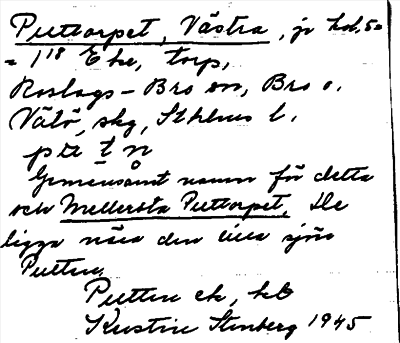 Puttorpet, Västra, jr kol. 5 =
= 1¹⁸ Eke, torp,
Roslags-Bro sn, Bro o.
Vätö skg, Sthlms l.
Gemensamt namn för detta
och Mellersta Puttorpet. De
ligga nära den lilla sjön
Putten.
Putten ek, kb
Kerstin Stenberg 1945